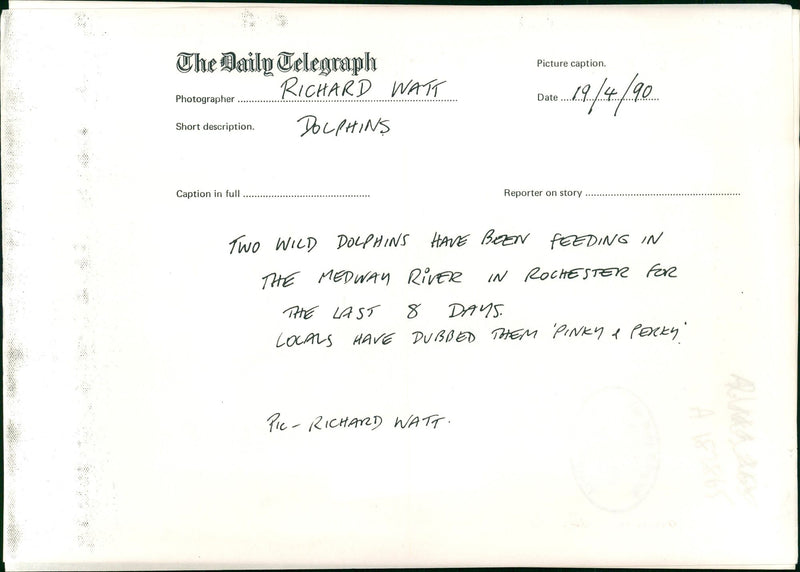 The Daily Telegraph
Picture caption.
Photographer RICHARD WATT
Date 19/4/90
Short description. DOLPHINS
Caption in full
Reporter on story
TWO WILD DOLPHINS HAVE BEEN FEEDING IN
THE MEDWAY RIVER IN ROCHESTER FOR
THE LAST 8 DAYS.
LOCALS HAVE DUBBED THEM 'PINKY & PERKY'.
PIC - RICHARD WATT.